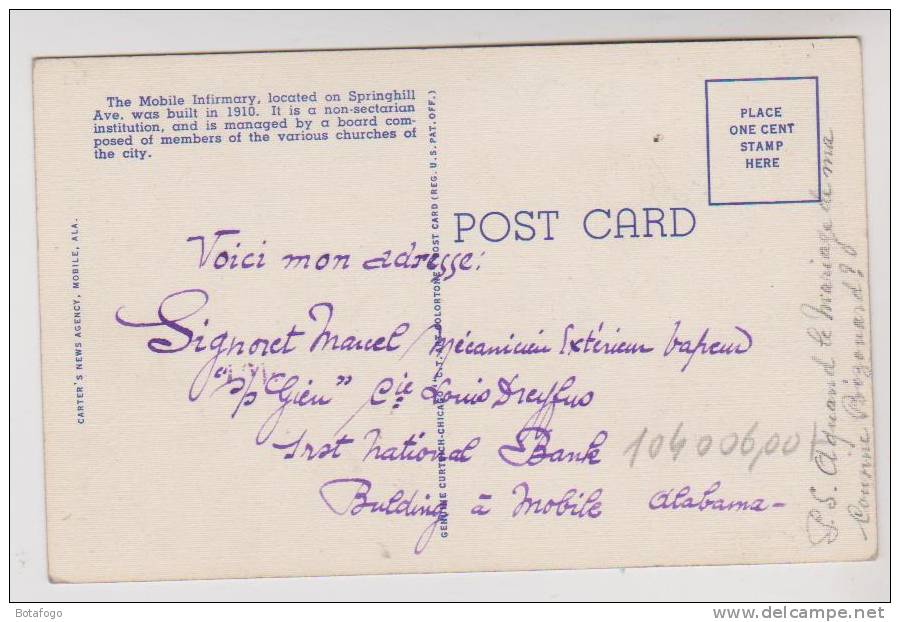 The Mobile Infirmary, located on Springhill
Ave, was built in 1910. It is a non-sectarian
institution, and is managed by a board com-
posed of members of the various churches of
the city.
CARTER'S NEWS AGENCY, MOBILE, ALA.
POST CARD (REG. U.S. PAT. OFF.)
GENUINE CURTEICH-CHICAGO "C.T. ART-COLORTONE"
POST CARD
PLACE
ONE CENT
STAMP
HERE
Voici mon adresse:
Signoret Marcel Mécanicien Extérieur Vapeur
"S/S Gien" Cie Louis Dreyfus
Irst National Bank
Bulding à Mobile Alabama-
10400600
P.S. A quand le mariage de ma
Cousine
Botafogo
www.delcampe.net